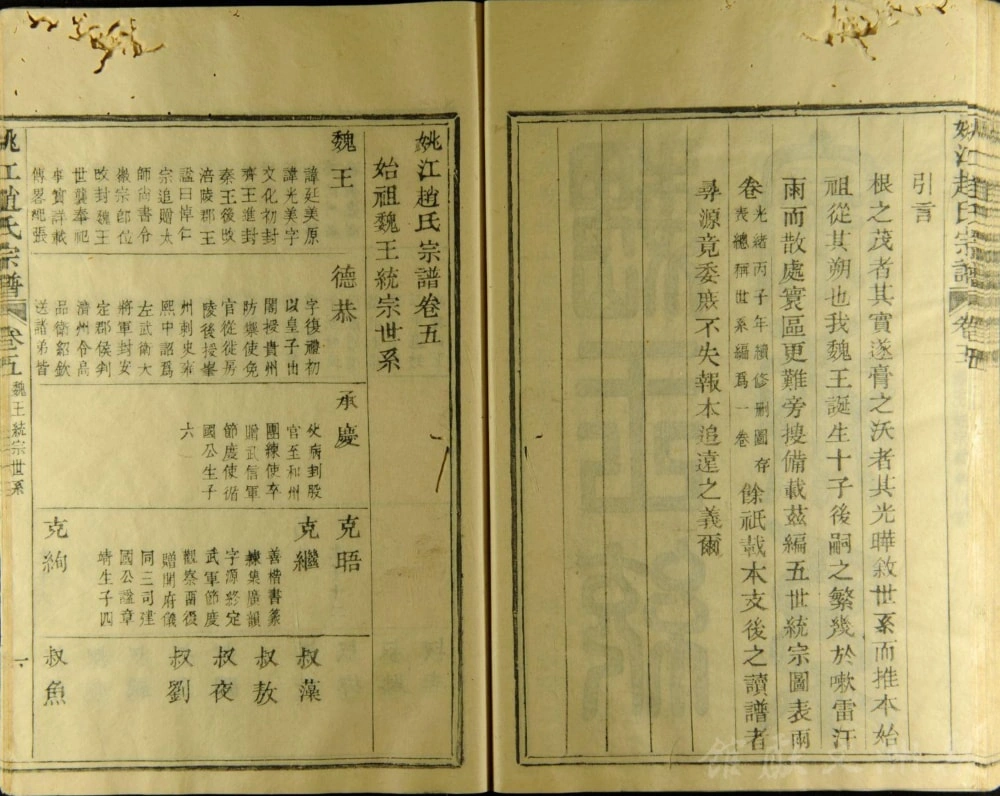 姚江趙氏宗譜
卷五
引言
根之茂者其實遂膏之沃者其光曄敘世系而推本始
祖從其朔也我魏王誕生十子後嗣之繁幾於嗽雷汗
雨而散處寰區更難旁搜備載茲編五世統宗圖表兩
卷光緒丙子年續修刪圖存表總稱世系編爲一卷餘祇載本支後之讀譜者
尋源竟委庶不失報本追遠之義爾
姚江趙氏宗譜卷五
始祖魏王統宗世系
魏王
諱廷美原
諱光美字
文化初封
齊王進封
秦王後改
涪陵郡王
謚曰悼仁
宗追贈太
師尚書令
徽宗卽位
改封魏王
世襲奉祀
事實詳載
傳畧紀張
德恭
字復禮初
以皇子出
閣授貴州
防禦使免
官從徙房
陵後授峯
州刺史雍
熙中詔爲
左武衛大
將軍封安
定郡侯判
濟州令高
品衛紹欽
送諸弟皆
承慶
官至和州
團練使卒
贈武信軍
節度使循
國公生子
六
克晤
克繼
善楷書篆
隸集廣韻
字源終定
武軍節度
觀察留後
贈開府儀
同三司建
國公謚章
靖生子四
克絢
叔藻
叔敖
叔夜
叔劉
叔魚
姚江趙氏宗譜
卷五
魏王統宗世系
一